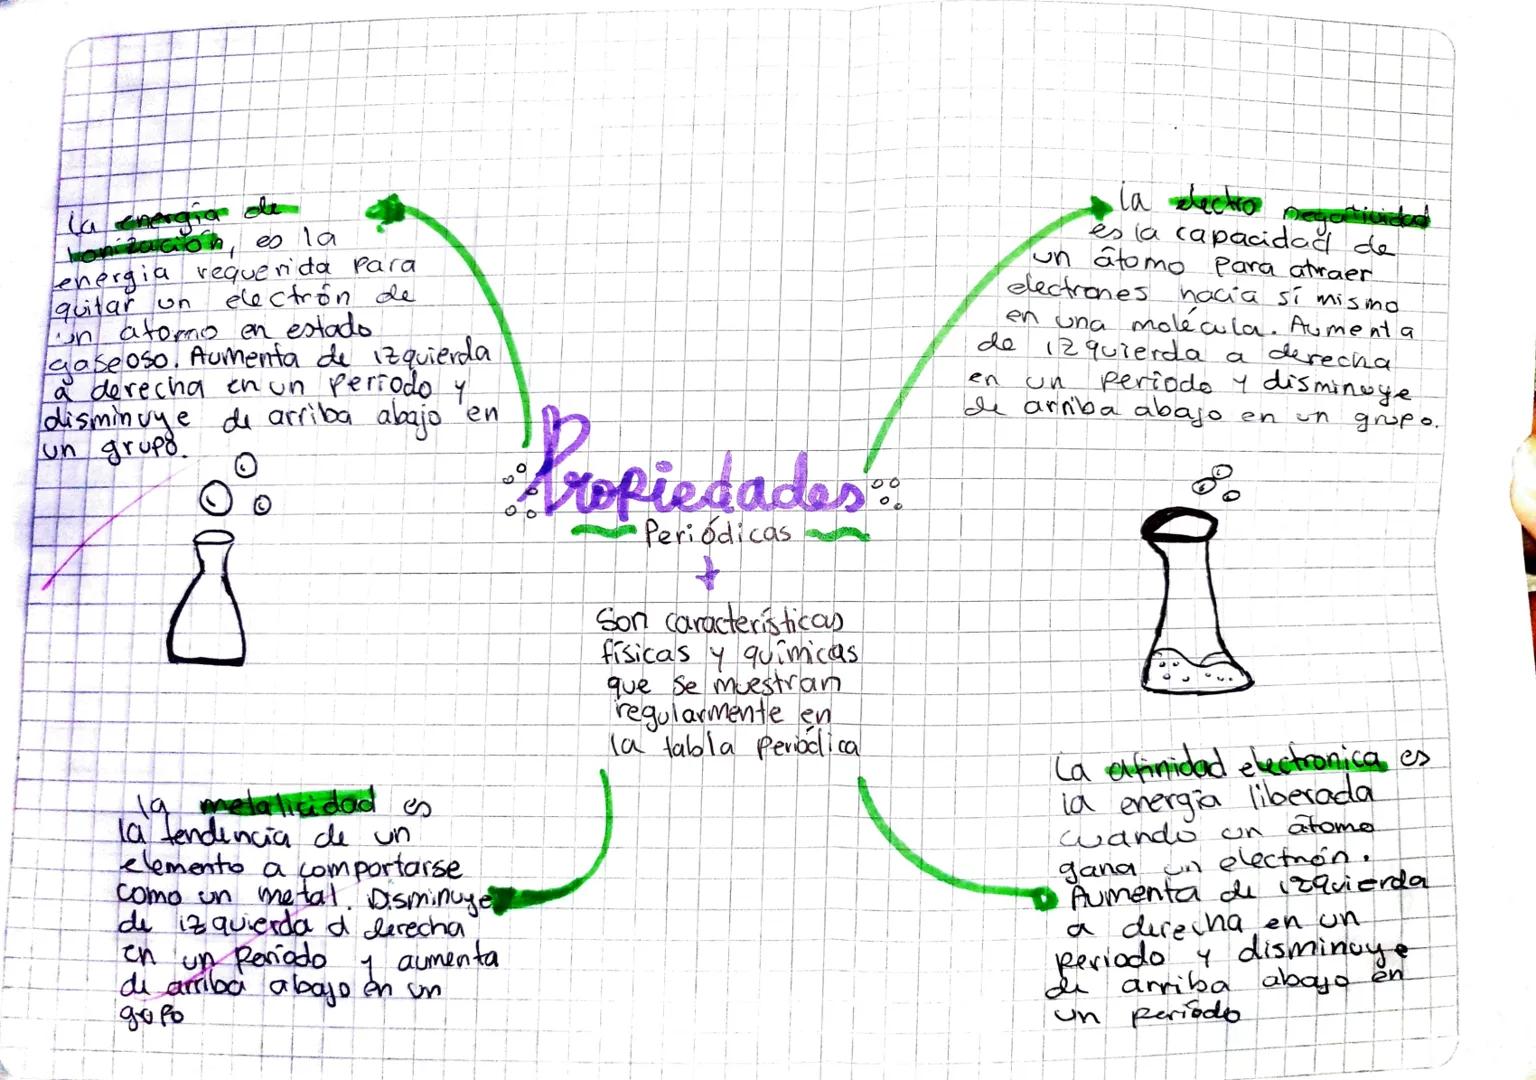 La energía de
Ionización, es la
energia requerida para
quitar un electrón de
un atomo en estado
gaseoso. Aumenta de izquierda
a derecha en un periodo y
disminuye de arriba abajo en
un grupo.
La electro negatividad
es la capacidad de
un átomo para atraer
electrones hacia sí mismo
en una molécula. Aumenta
de izquierda a derecha
en un período y disminuye
de arriba abajo en un grupo.
Propiedades
Periódicas
Son características
físicas y químicas
que se muestran
regularmente en
la tabla Periódica
la metalicidad es
la tendencia de un
elemento a comportarse
como un metal. Disminuye
de izquierda a derecha
en un período y aumenta
de arriba abajo en un
grupo
La afinidad electronica es
la energía liberada
cuando un átomo
gana un electrón.
Aumenta de izquierda
a derecha en un
periodo y disminuye
de arriba abajo en
un período